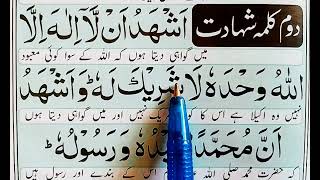 دوم کلمہ شہادت اَشْهَدُ اَنْ لَّاۤ اِلٰهَ اِلَّا
میں گواہی دیتا ہوں کہ اللہ کے سوا کوئی معبود
اللّٰهُ وَحْدَهٗ لَا شَرِيْكَ لَهٗ وَاَشْهَدُ
نہیں وہ اکیلا ہے اس کا کوئی شریک نہیں اور میں گواہی دیتا ہوں
اَنَّ مُحَمَّدًا عَبْدُهٗ وَرَسُوْلُهٗ ؕ
کہ حضرت محمد صلی اللہ اس کے بندے اور رسول ہیں